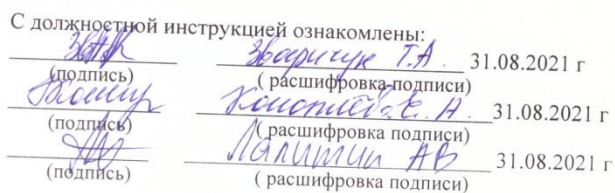 С должностной инструкцией ознакомлены:
Зваричук Т.А. 31.08.2021 г
(подпись) ( расшифровка подписи)
31.08.2021 г
(подпись) ( расшифровка подписи)
Лапитин АВ 31.08.2021 г
(подпись) ( расшифровка подписи)